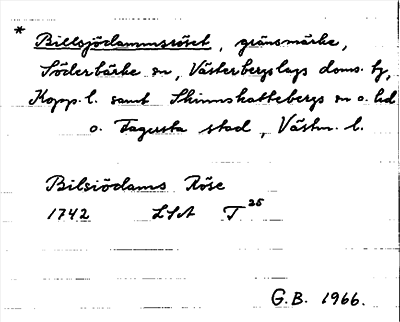 * Billsjödammsröset, gränsmärke,
Söderbärke sn, Västerbergslags doms. tg,
Kopp. l. samt Skinnskattebergs sn o. hd
o. Fagersta stad, Västm. l.
Bilsiödams Röse
1742 LSA T 25
G.B. 1966.